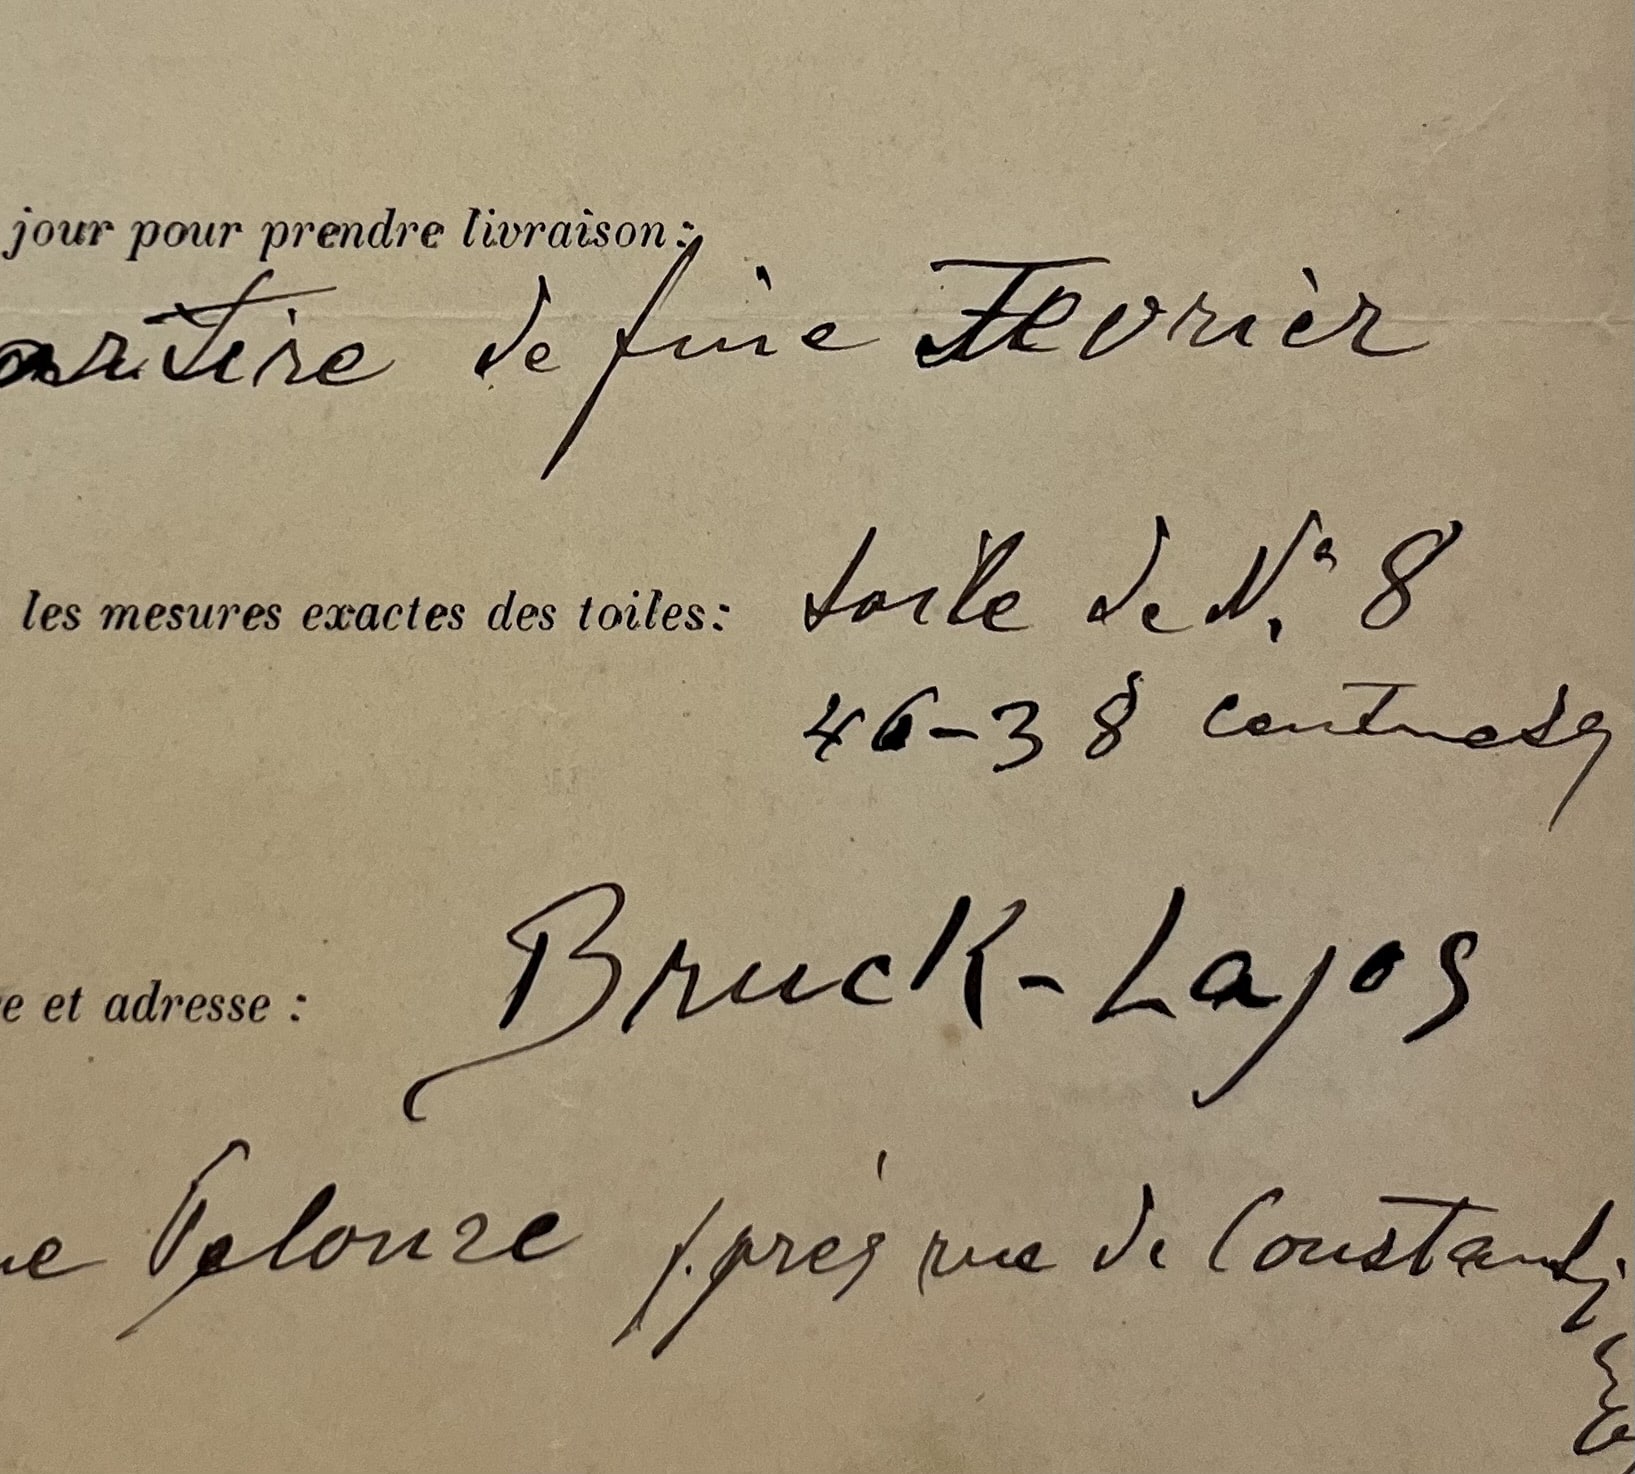 jour pour prendre livraison:
artire de fine Fevrièr
les mesures exactes des toiles: toile de No. 8
46-38
e et adresse: Bruck-Lajos
ue Pelouze près rue de